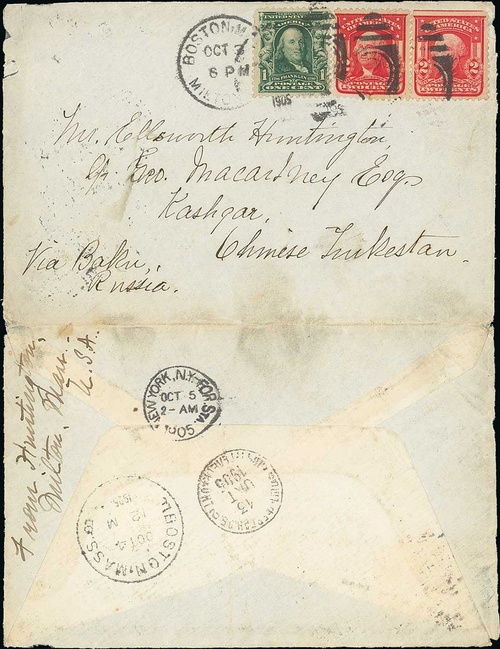 BOSTON, M
OCT
6 PM
MILTO
1905
UNITED STATES
OF AMERICA
1 1
FRANKLIN
POSTAGE
ONE CENT
UNITED STATES
OF AMERICA
POSTAGE
TWO CENTS
UNITED STATES
OF AMERICA
2 2
POSTAGE
TWO CENTS
Mr. Ellsworth Huntington,
℅ Geo. Macartney Esq.
Kashgar,
Chinese Turkestan.
Via Baku,
Russia.
From Huntington,
Milton, Mass.
U. S. A.
NEW YORK, N.Y. FOR. STA
OCT 5
2-AM
1905
13
OKT
1905
BOSTON, MASS.
OCT 4
12 M
1905